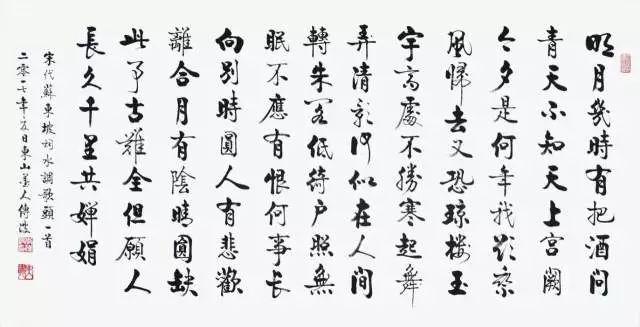 明月幾時有把酒問
青天不知天上宮闕
今夕是何年我欲乘
風歸去又恐琼樓玉
宇高處不勝寒起舞
弄清影何似在人間
轉朱閣低綺戶照無
眠不應有恨何事長
向別時圓人有悲歡
離合月有陰晴圓缺
此事古難全但願人
長久千里共嬋娟
宋代蘇東坡詞水調歌頭一首
二零一七年東山人